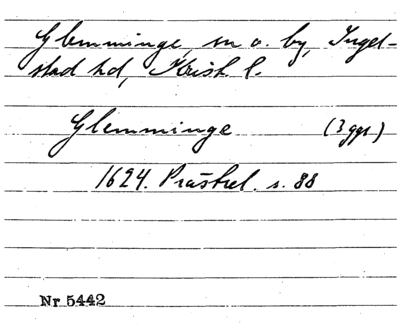 Glemminge, sn o. by, Ingel-
stad hd, Krist. l.
Glemminge (3 ggr)
1624. Prästrel. s. 88
Nr 5442